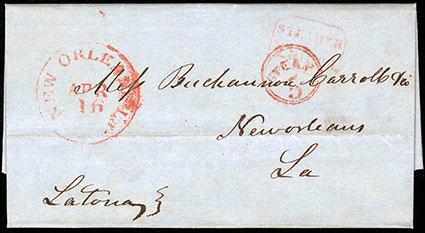 STEAMER
STEAM
5
NEW ORLEANS
APR
16
Mess Buchannon Carroll & Co
New orleans
La
Latona